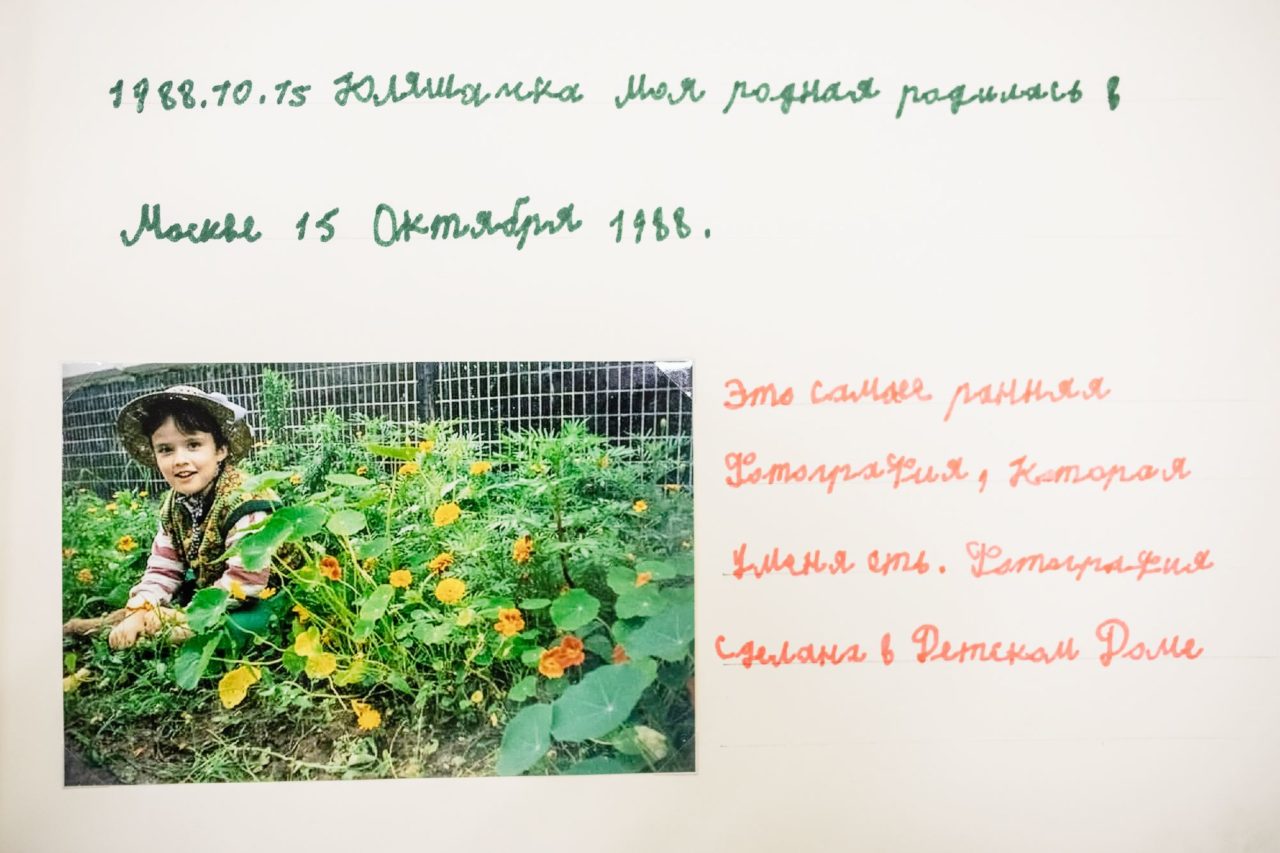 1988.10.15 Юляшачка Моя родная родилась в
Москве 15 Октября 1988.
Это самое ранняя
Фотография, Которая
Уменя еть. Фотография
сделана в Детском Доме